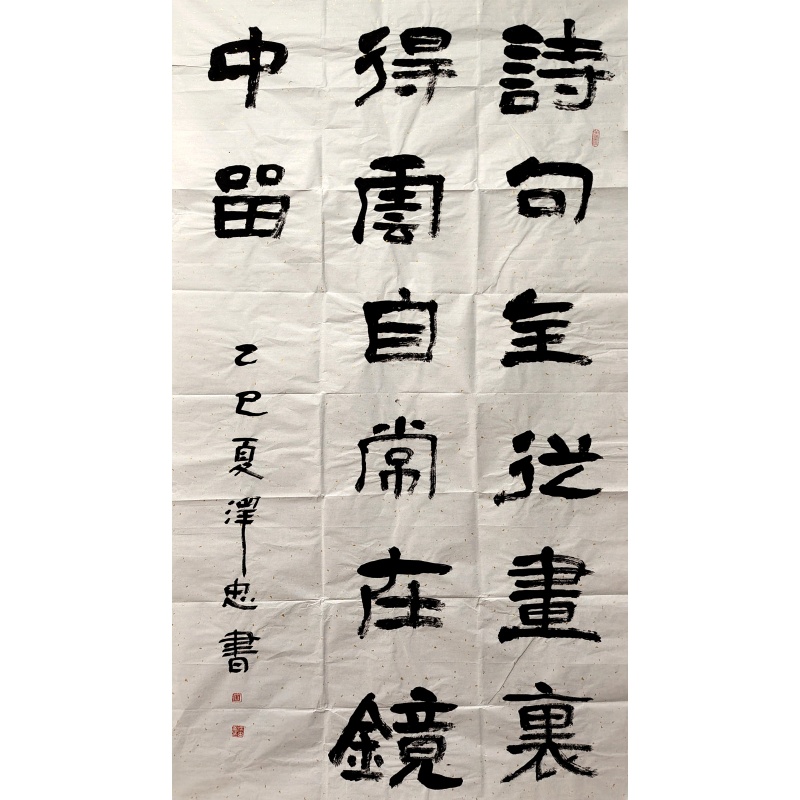 詩句全從畫裏
得雲自常在鏡
中留
乙巳夏澤忠書